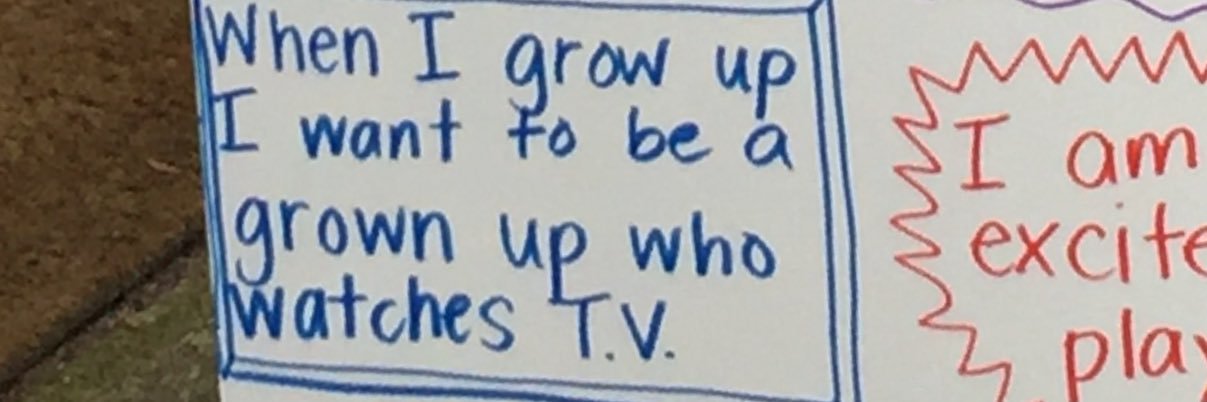 When I grow up
I want to be a
grown up who
watches T.V.
I am